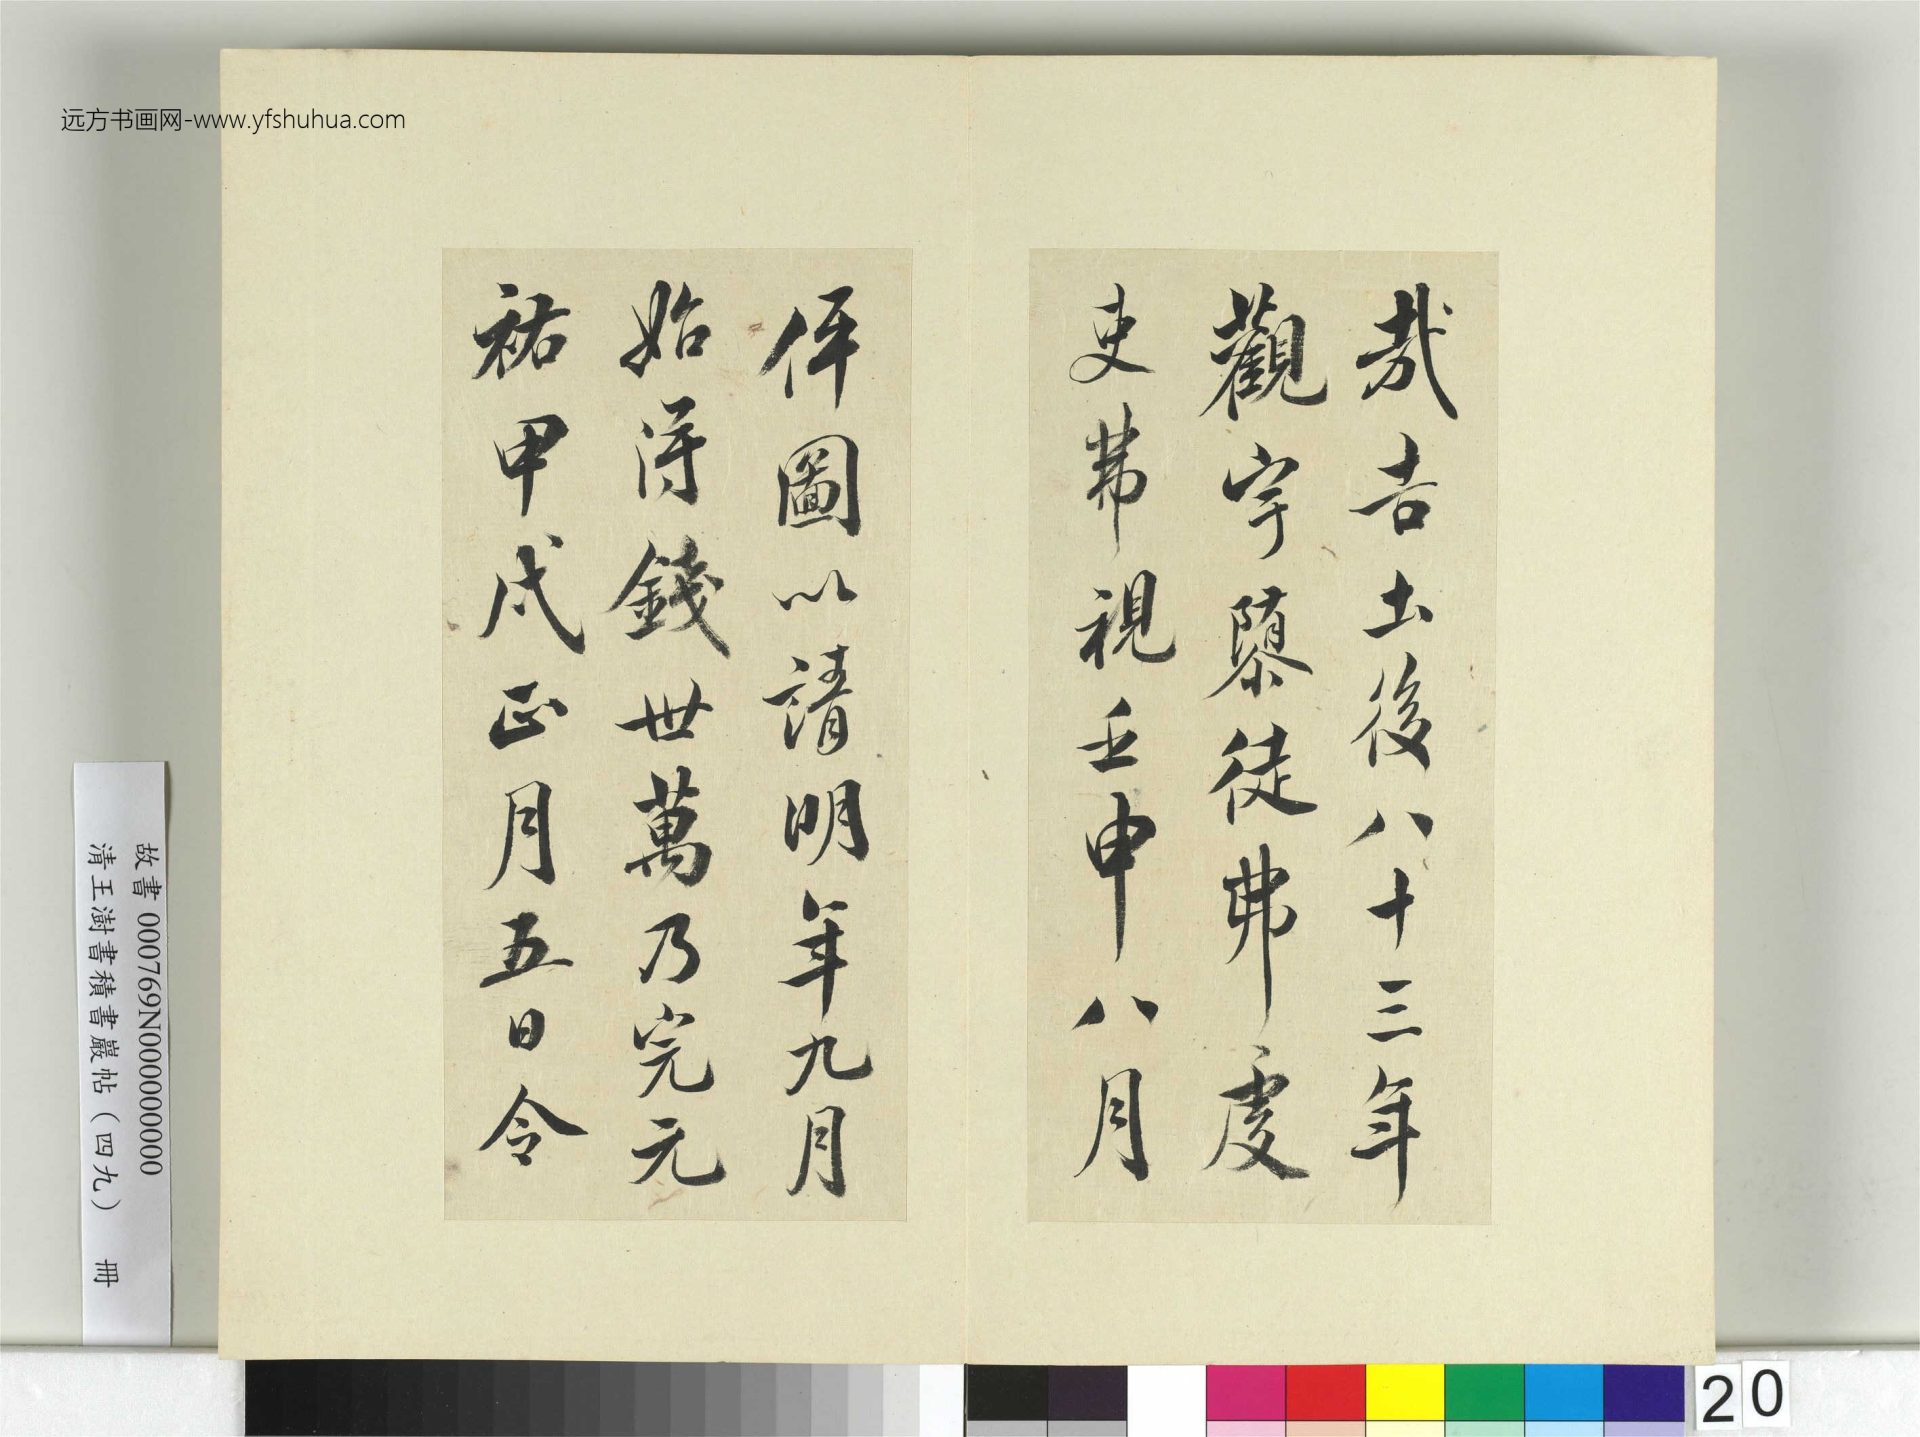 远方书画网-www.yfshuhua.com
哉吉土後八十三年
觀宇隳徒弗處
吏芾視壬申八月
伻圖以請明年九月
始得錢世萬乃完元
祐甲戌正月五日令
故書 000769N000000000
清王澍書積書巖帖（四九） 冊
20